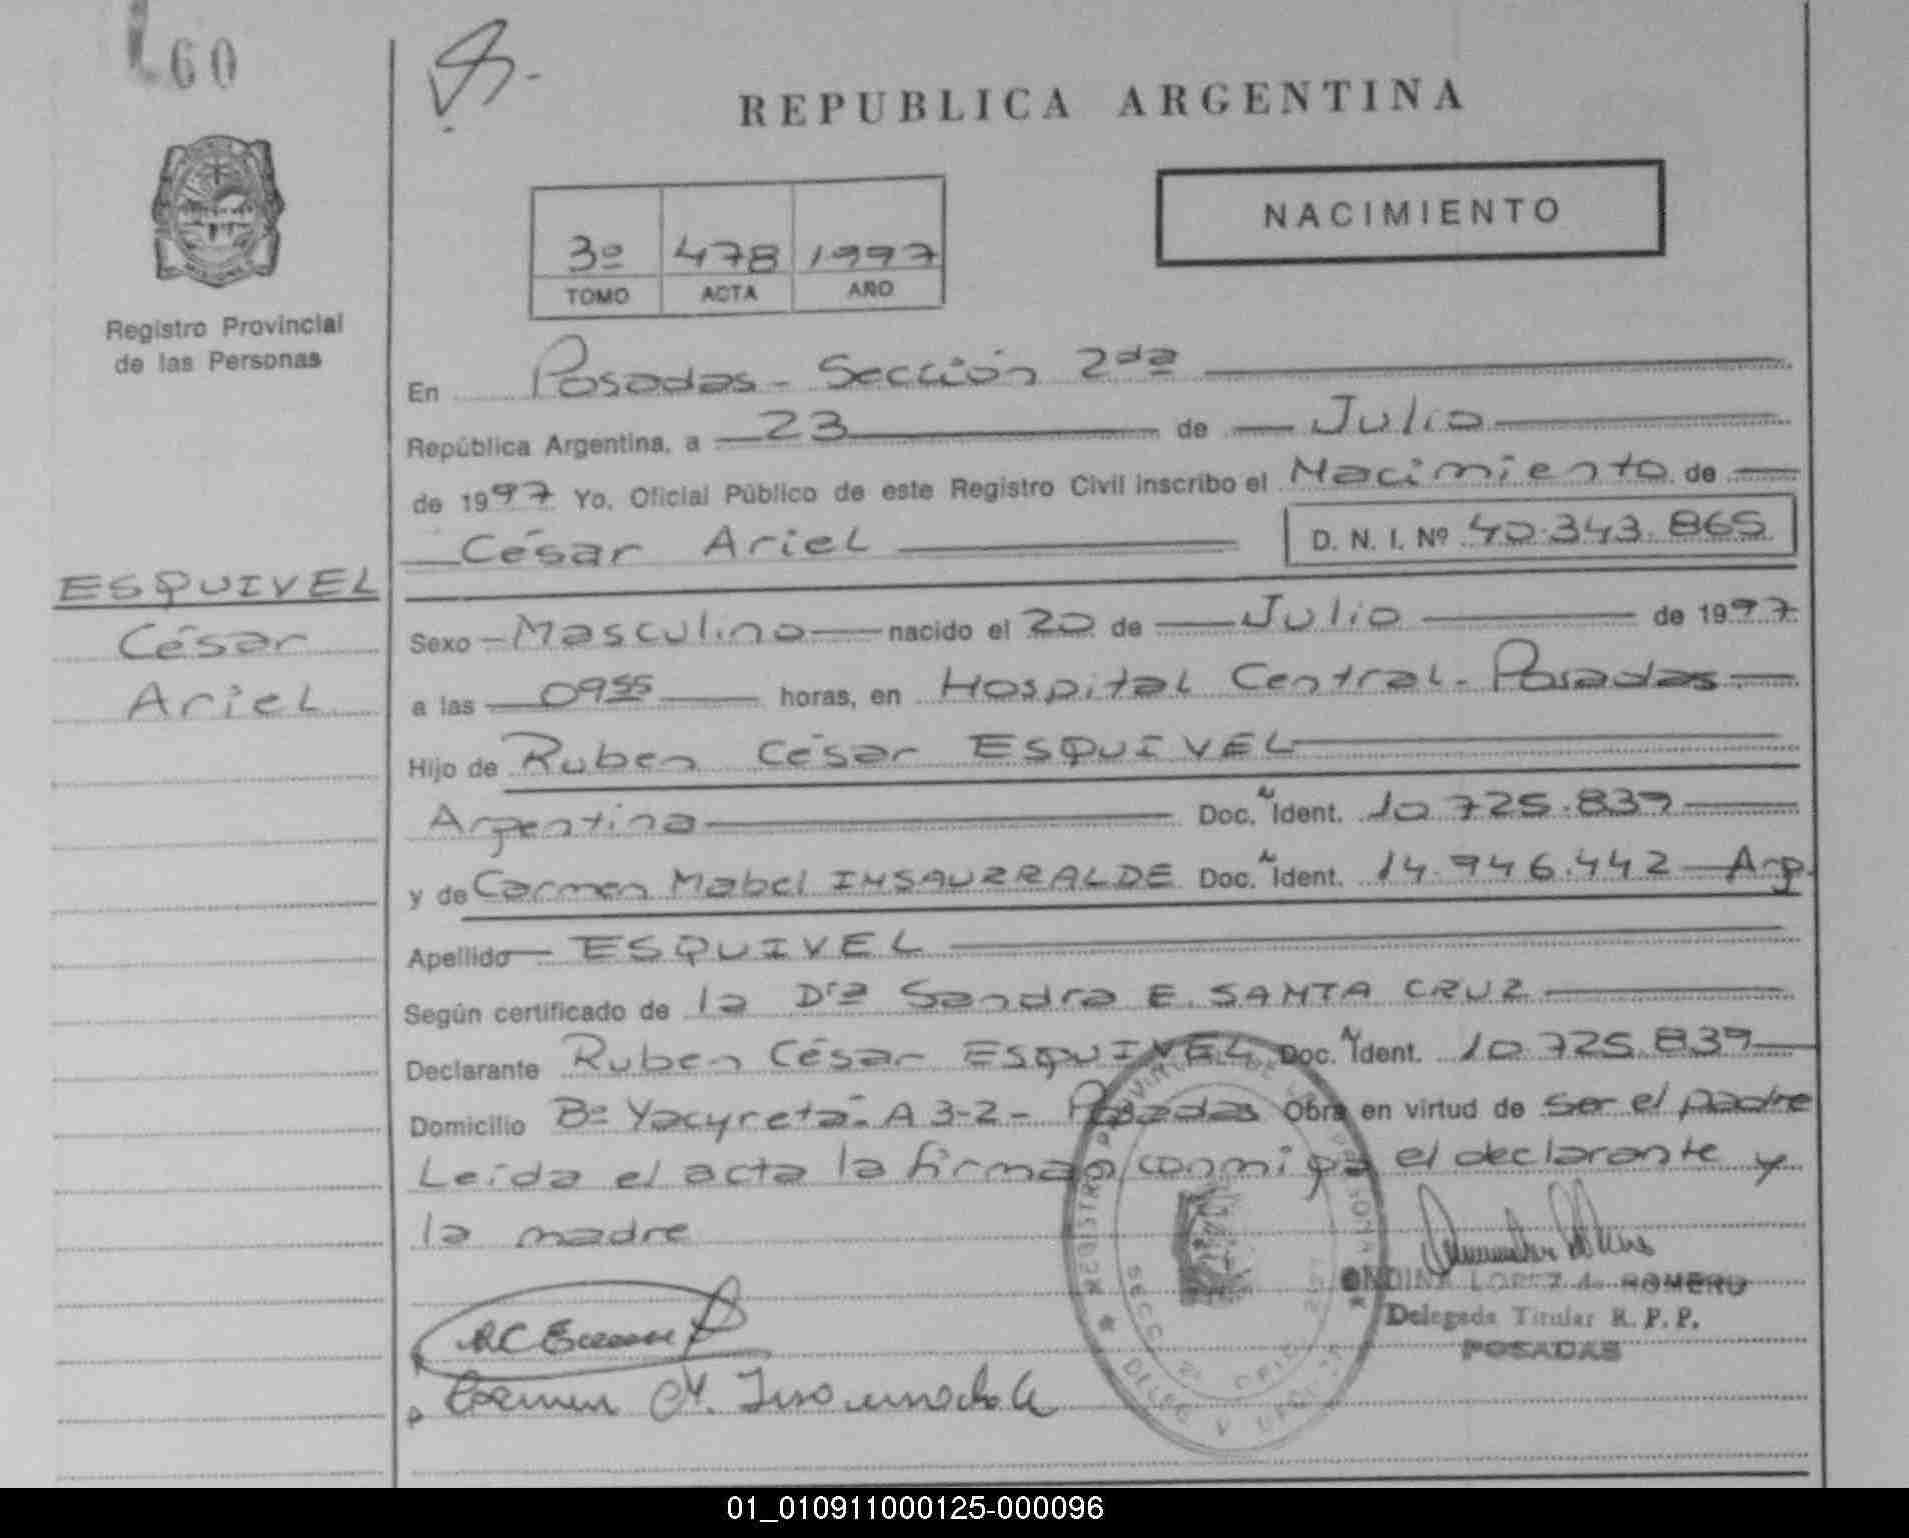 60
REPUBLICA ARGENTINA
NACIMIENTO
3º 478 1997
TOMO ACTA AÑO
Registro Provincial
de las Personas
En Posadas - Sección 2da
República Argentina, a 23 de Julio
de 1997 Yo, Oficial Público de este Registro Civil inscribo el Nacimiento de
César Ariel D. N. I. Nº 40.343.865
ESQUIVEL
César
Ariel
Sexo Masculino nacido el 20 de Julio de 1997
a las 09 55 horas, en Hospital Central - Posadas
Hijo de Ruben César ESQUIVEL
Argentina Doc. N Ident. 10.725.839
y de Carmen Mabel INSAURRALDE Doc. N Ident. 14.946.442 - Arg.
Apellido ESQUIVEL
Según certificado de la Dra Sandra E. SANTA CRUZ
Declarante Ruben César ESQUIVEL Doc. N Ident. 10.725.839
Domicilio Bº Yacyretá - A 3-2 - Posadas Obra en virtud de ser el padre
Leída el acta la firman conmigo el declarante y
la madre
ONDINA LOPEZ de ROMERO
Delegada Titular R. P. P.
POSADAS
Carmen M. Insaurralde
01_010911000125-000096